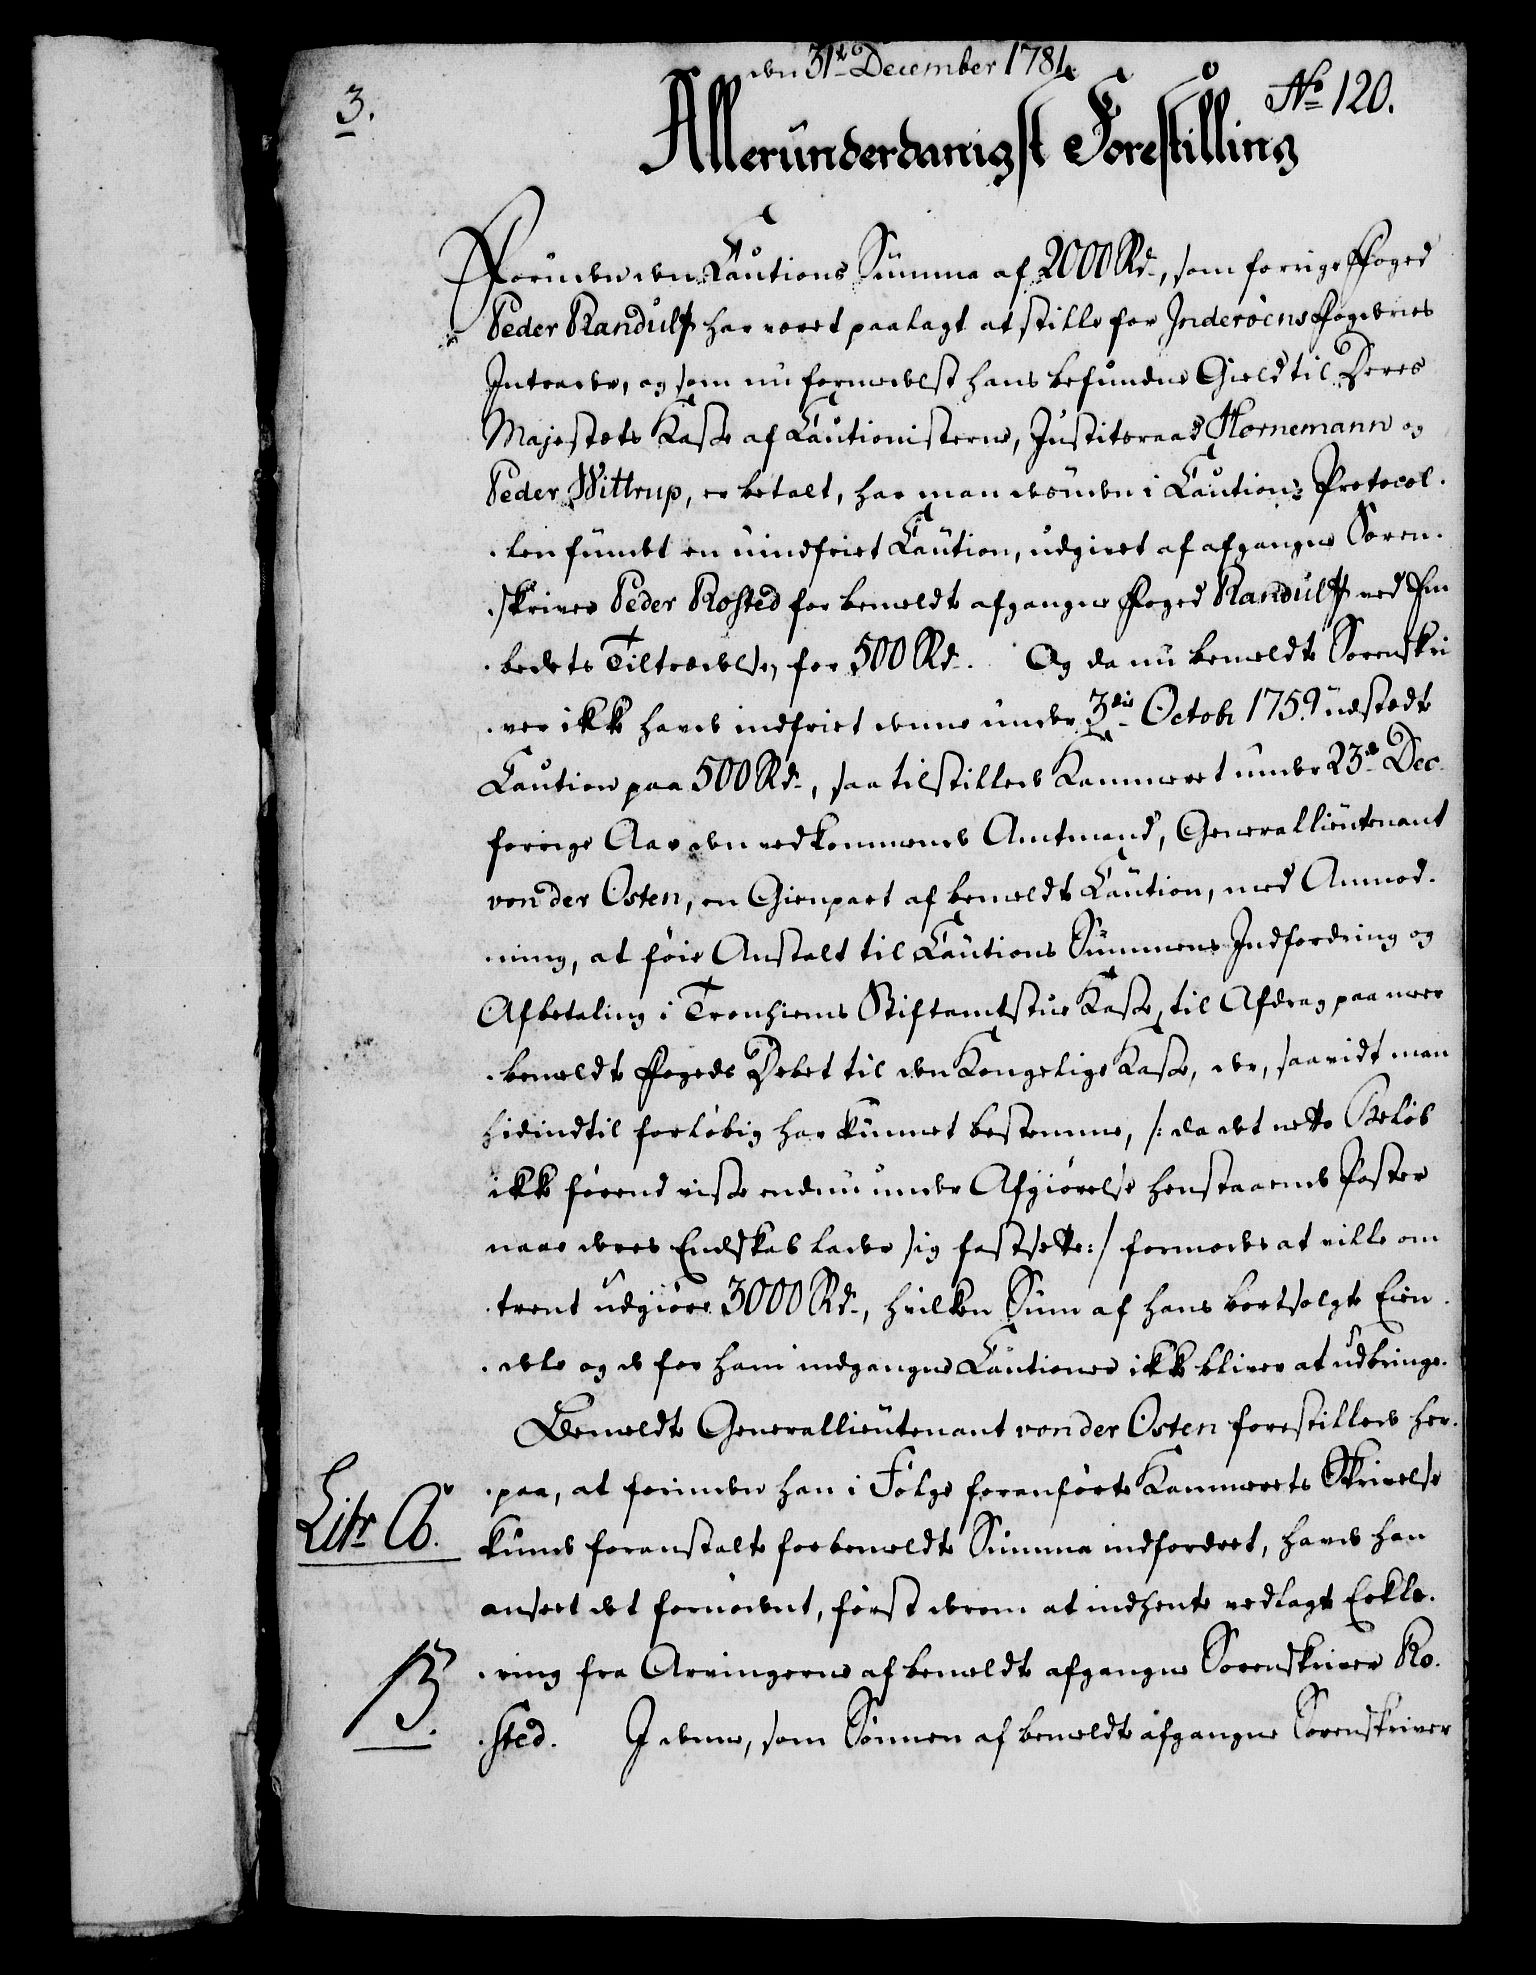 den 31te December 1781.
3.
No 120.
Allerunderdanigst Forestilling
Foruden den Cautions Summa af 2000 Rd., som forrige Foged
Peder Randulff har været paalagt at stille for Inderøens Fogderies
Intrader, og som nu formedelst hans befundne Gield til Deres
Majestæts Kasse af Cautionisterne, Justitsraad Hornemann og
Peder Wittrup, er betalt, har man desuden i Cautions Protocol-
len fundet en uindfriet Caution, udgivet af afgangne Soren-
skriver Peder Rosted for bemeldte afgangne Foged Randulff ved Em
bedets Tiltrædelse, for 500 Rd. Og da nu bemeldte Sorenskri
ver ikke havde indfriet denne under 3die Octobr 1759 udstædte
Caution paa 500 Rd., saa tilstillede Kammeret under 23de Dec.
forrige Aar den vedkommende Amtmand, Generallieutenant
von der Osten, en Gienpart af bemeldte Caution, med Anmod-
ning, at føie Anstalt til Cautions Summens Indfordring og
Afbetaling i Tronhiems Stiftamtstue Kasse, til Afdrag paa meer
bemeldte Fogeds Debet til den Kongelige Kasse, der, saavidt man
hidindtil forløbig har kunnet bestemme, /: da det netto Beløb
ikke førend visse endnu under Afgiørelse henstaaende Poster
naae deres Endskab lader sig fastsette :/ formodes at ville om
trent udgiøre 3000 Rd., hvilken Sum af hans bortsolgte Eien-
dele og de for ham indgangne Cautioner ikke bliver at udbringe.
Bemeldte Generallieutenant von der Osten forestillede her-
paa, at forinden han i Følge foranførte Kammerets Skrivelse
Litr. A.
kunde foranstalte forbemeldte Summa indfordret, havde han
anseet det fornødent, først derom at indhente vedlagte Erklæ-
ring fra Arvingerne af bemeldte afgangne Sorenskriver Ro-
B.
sted. I denne, som Sønnen af bemeldte afgangne Sorenskriver